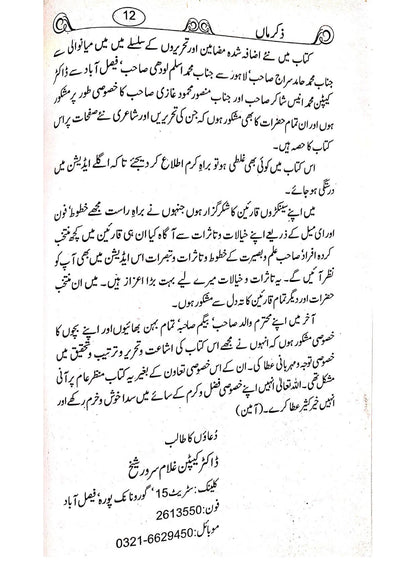 12
ذکر ماں
کتاب میں نئے اضافہ شدہ مضامین اور تحریروں کے سلسلے میں میں میانوالی سے
جناب محمد حامد سراج صاحب' لاہور سے جناب محمد اسلم لودھی صاحب' فیصل آباد سے ڈاکٹر
کیپٹن محمد انیس شاکر صاحب اور جناب منصور محمود غازی صاحب کا خصوصی طور پر مشکور
ہوں اور ان تمام حضرات کا بھی مشکور ہوں کہ جن کی تحریریں اور شاعری نئے صفحات پر اس
کتاب کا حصہ ہیں۔
اس کتاب میں کوئی بھی غلطی ہو تو براہِ کرم اطلاع کر دیجئے تا کہ اگلے ایڈیشن میں
درستگی ہو جائے۔
میں اپنے سینکڑوں قارئین کا شکرگزار ہوں جنہوں نے براہِ راست مجھے خطوط' فون
اور ای میل کے ذریعے اپنے خیالات و تاثرات سے آگاہ کیا ان ہی قارئین میں کچھ منتخب
کردہ افراد' صاحب علم و بصیرت کے خطوط و تاثرات و تبصرات اس ایڈیشن میں بھی آپ کو
نظر آئیں گے۔ یہ تاثرات و خیالات میرے لیے بہت بڑا اعزاز ہیں۔ میں ان منتخب
حضرات اور دیگر تمام قارئین کا تہ دل سے مشکور ہوں۔
آخر میں اپنے محترم والد صاحب' بیگم صاحبہ' تمام بہن بھائیوں اور اپنے بچوں کا
خصوصی مشکور ہوں کہ انہوں نے مجھے اس کتاب کی اشاعت و تحریر و ترتیب و تحقیق میں
خصوصی توجہ و مہربانی عطا کی۔ ان کے اس خصوصی تعاون کے بغیر یہ کتاب منظر عام پر آنی
مشکل تھی۔ اللہ تعالیٰ انہیں اپنے خصوصی فضل و کرم کے سائے میں سدا خوش و خرم رکھے اور
انہیں خیر کثیر عطا کرے۔ (آمین)
دُعاؤں کا طالب
ڈاکٹر کیپٹن غلام سرور شیخ
کلینک: سٹریٹ 15' گورونانک پورہ' فیصل آباد
فون: 2613550
موبائل: 0321-6629450